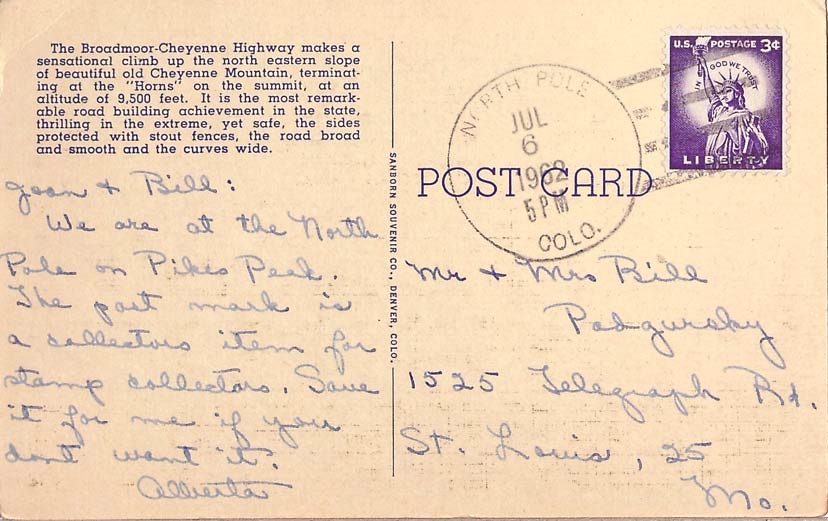 The Broadmoor-Cheyenne Highway makes a
sensational climb up the north eastern slope
of beautiful old Cheyenne Mountain, terminat-
ing at the "Horns" on the summit, at an
altitude of 9,500 feet. It is the most remark-
able road building achievement in the state,
thrilling in the extreme, yet safe, the sides
protected with stout fences, the road broad
and smooth and the curves wide.
Jean & Bill:
We are at the North
Pole on Pikes Peak.
The post mark is
a collectors item for
stamp collectors. Save
it for me if you
dont want it.
Alberta
SANBORN SOUVENIR CO., DENVER, COLO.
POST CARD
NORTH POLE
JUL
6
1962
5 PM
COLO.
U.S. POSTAGE 3¢
IN GOD WE TRUST
LIBERTY
Mr & Mrs Bill
Podgursky
1525 Telegraph Rd.
St. Louis, 25
Mo.